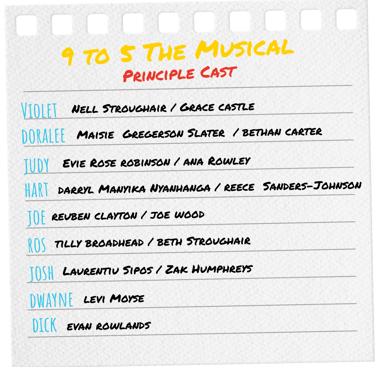 9 to 5 The Musical
Principle Cast
Violet Nell Stroughair / Grace castle
Doralee Maisie Gregerson Slater / bethan carter
Judy Evie Rose robinson / ana Rowley
Hart darryl Manyika Nyanhanga / reece Sanders-Johnson
Joe reuben clayton / joe wood
Ros tilly broadhead / beth Stroughair
Josh Laurentiu Sipos / Zak Humphreys
Dwayne levi Moyse
Dick evan rowlands